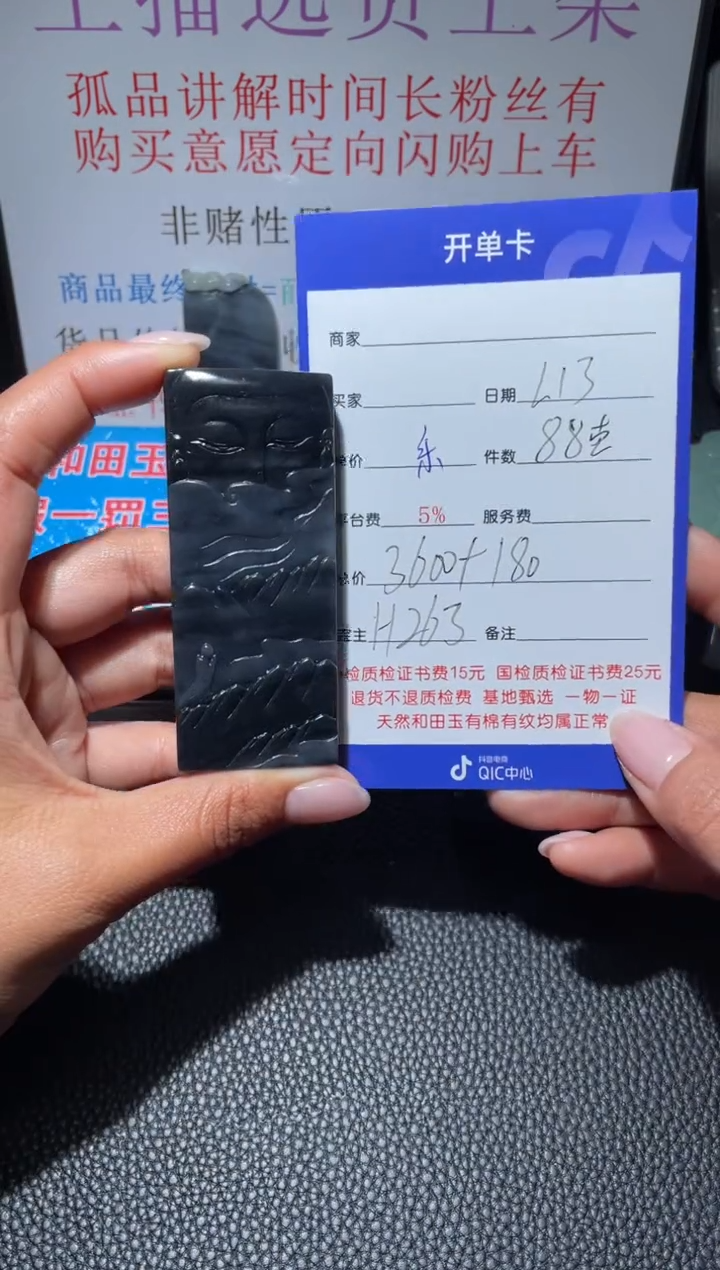 上播选货上架
孤品讲解时间长粉丝有
购买意愿定向闪购上车
非赌性
商品最终
开单卡
商家
买家 日期 L13
单价 乐 件数 88
平台费 5% 服务费
总价 3600+180
货主 H263 备注
检质检证书费15元 国检质检证书费25元
退货不退质检费 基地甄选 一物一证
天然和田玉有棉有纹均属正常
抖音电商
QIC中心
和田玉
一罚